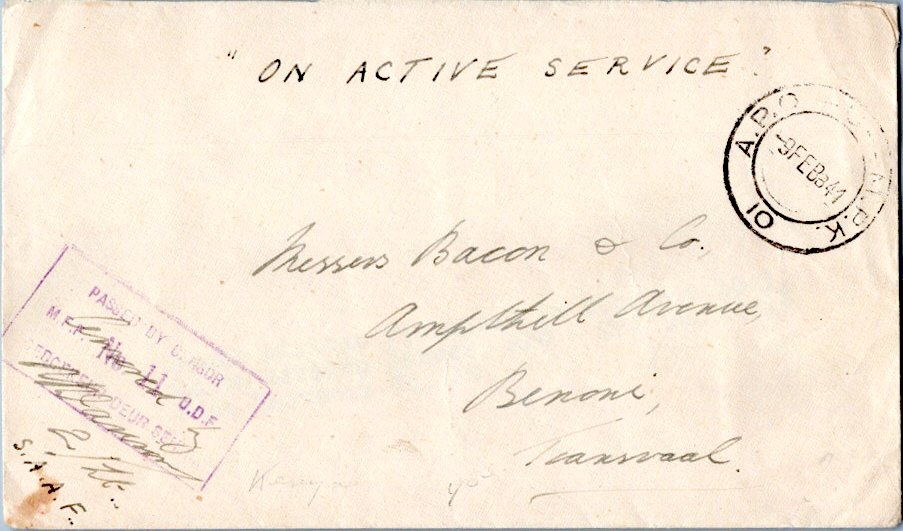 " ON ACTIVE SERVICE "
A.P.O M.P.K. 10
9 FEB 41
Messers Bacon & Co.,
Ampthill Avenue,
Benoni,
Transvaal.
PASSED BY CENSOR
No 11
U.D.F.
2/Lt.
S.A.A.F.
Kenya